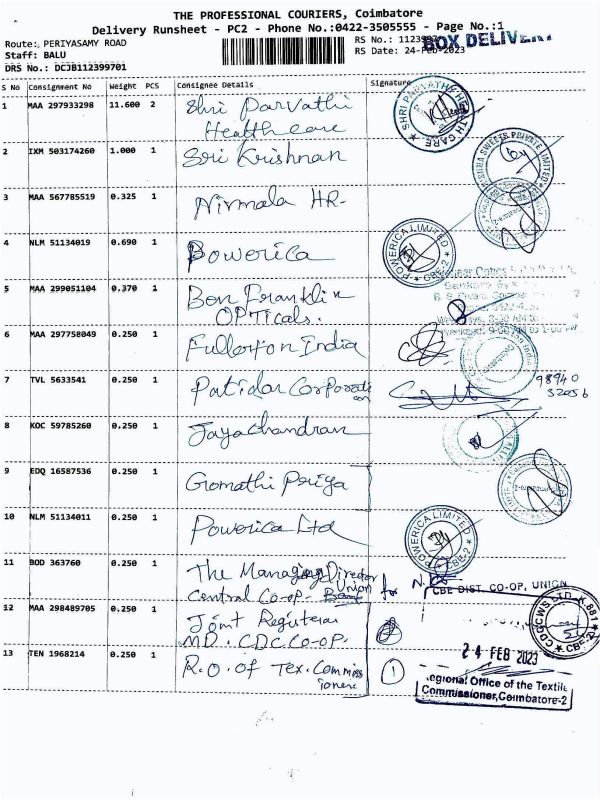 THE PROFESSIONAL COURIERS, Coimbatore
Delivery Runsheet - PC2 - Phone No.:0422-3505555 - Page No.:1
Route: PERIYASAMY ROAD
RS No.:
BOX DELIVERY
Staff: BALU
RS Date: 24-Feb-2023
DRS No.: DCJB112399701
S No Consignment No Weight PCS Consignee Details Signature
1 MAA 297933298 11.600 2 Shri Parvathi
Health care
SHRI PARVATHI HEALTH CARE
2 IXM 503174260 1.000 1 Sri Krishnan
SWEETS PRIVATE LIMITED
3 MAA 567785519 0.325 1 Nirmala HR-
4 NLM 51134019 0.690 1 Powerica
POWERICA LIMITED CBE-2
5 MAA 299051104 0.370 1 Ben Franklin
OPTicals.
6 MAA 297758049 0.250 1 Fullerton India
7 TVL 5633541 0.250 1 Patidar Corporati
on
98940
32056
8 KOC 59785260 0.250 1 Jayachandran
9 EDQ 16587536 0.250 1 Gomathi Priya
10 NLM 51134011 0.250 1 Powerica Ltd
POWERICA LIMITED CBE-2
11 BOD 363760 0.250 1 The Managing Director
Central Co-op. Union
for
CBE DIST. CO-OP. UNION
12 MAA 298489705 0.250 1 Joint Registrar
MD. CDC.CO-OP.
2
CDCCWS LTD. K.881 CBE-2
13 TEN 1968214 0.250 1 R.O. of Tex. Commiss
ioner
1
24 FEB 2023
Regional Office of the Textile
Commissioner, Coimbatore-2